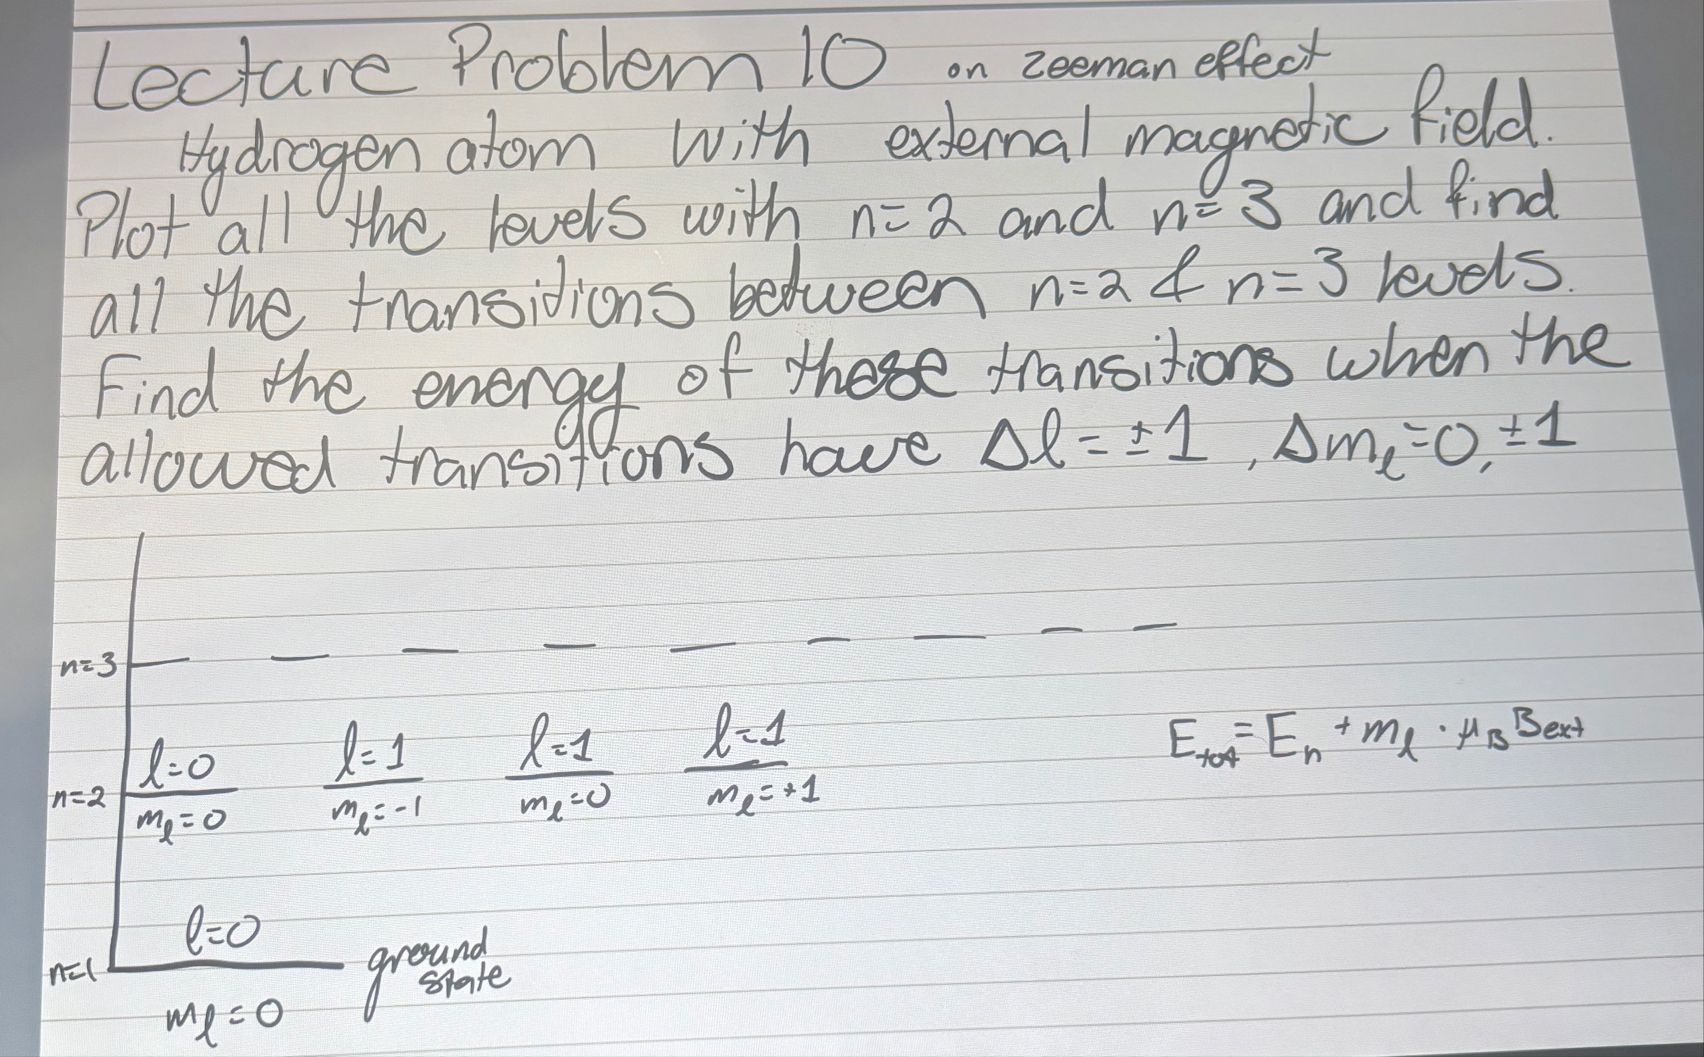 Lecture Problem 10 on zeeman effect
Hydrogen atom with external magnetic field.
Plot all the levels with n=2 and n=3 and find
all the transitions between n=2 & n=3 levels.
Find the energy of these transitions when the
allowed transitions have Δl=±1, Δmₗ=0,±1
n=3
l=0 l=1 l=1 l=1
n=2
mₗ=0 mₗ=-1 mₗ=0 mₗ=+1
E_tot=E_n+mₗ·μ_B B_ext
l=0
n=1
ground
state
mₗ=0